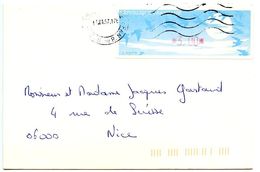 Monsieur et Madame Jacques Gastaud
4 rue de Suisse
06000 Nice